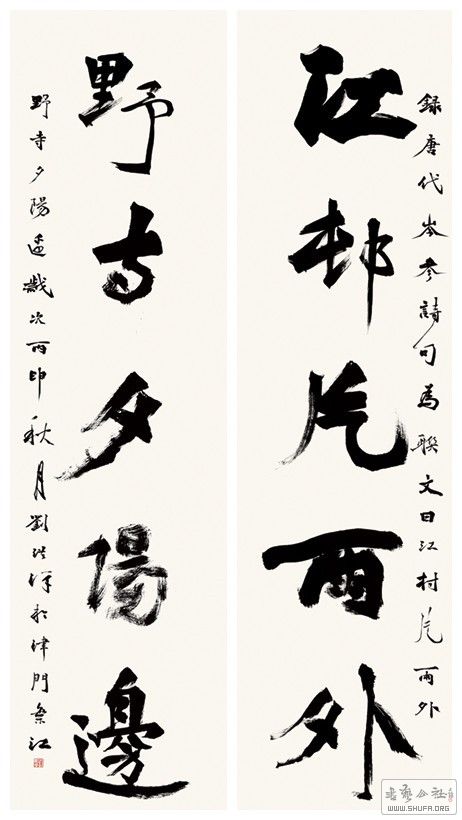 錄唐代岑參詩句為聯文曰江村片雨外
江邨片雨外
野寺夕陽邊
野寺夕陽邊歲次丙申秋月劉洪洋於津門
WWW.SHUFA.ORG